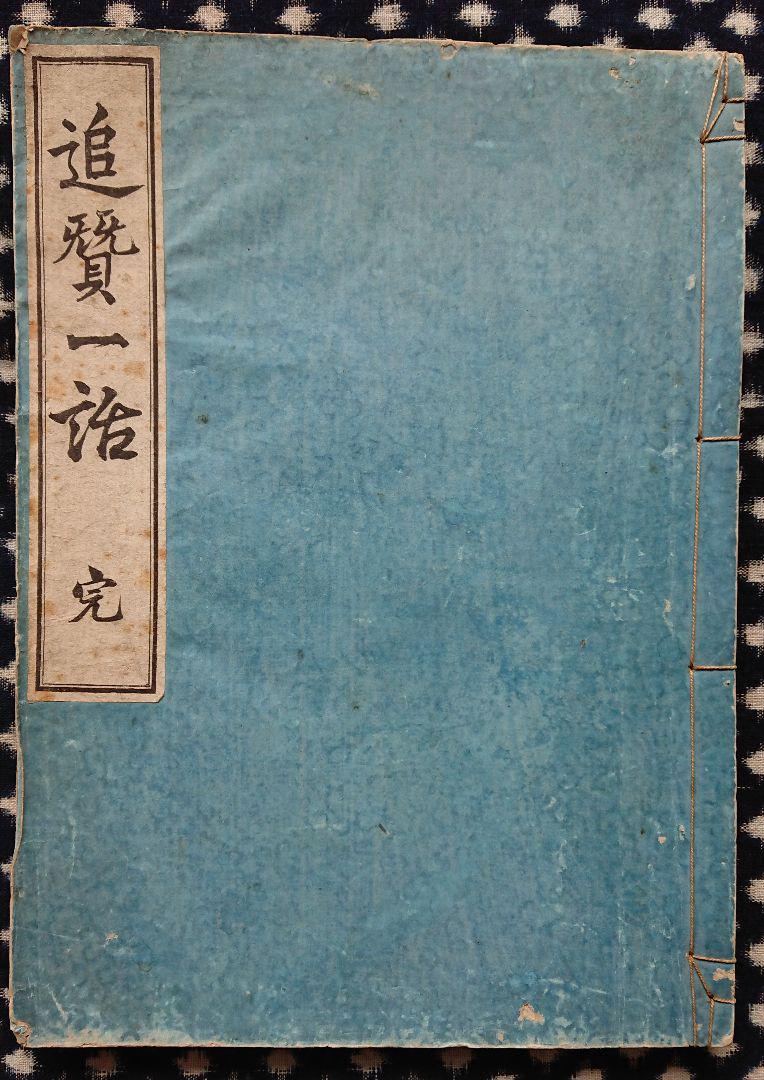 追賛一話
完